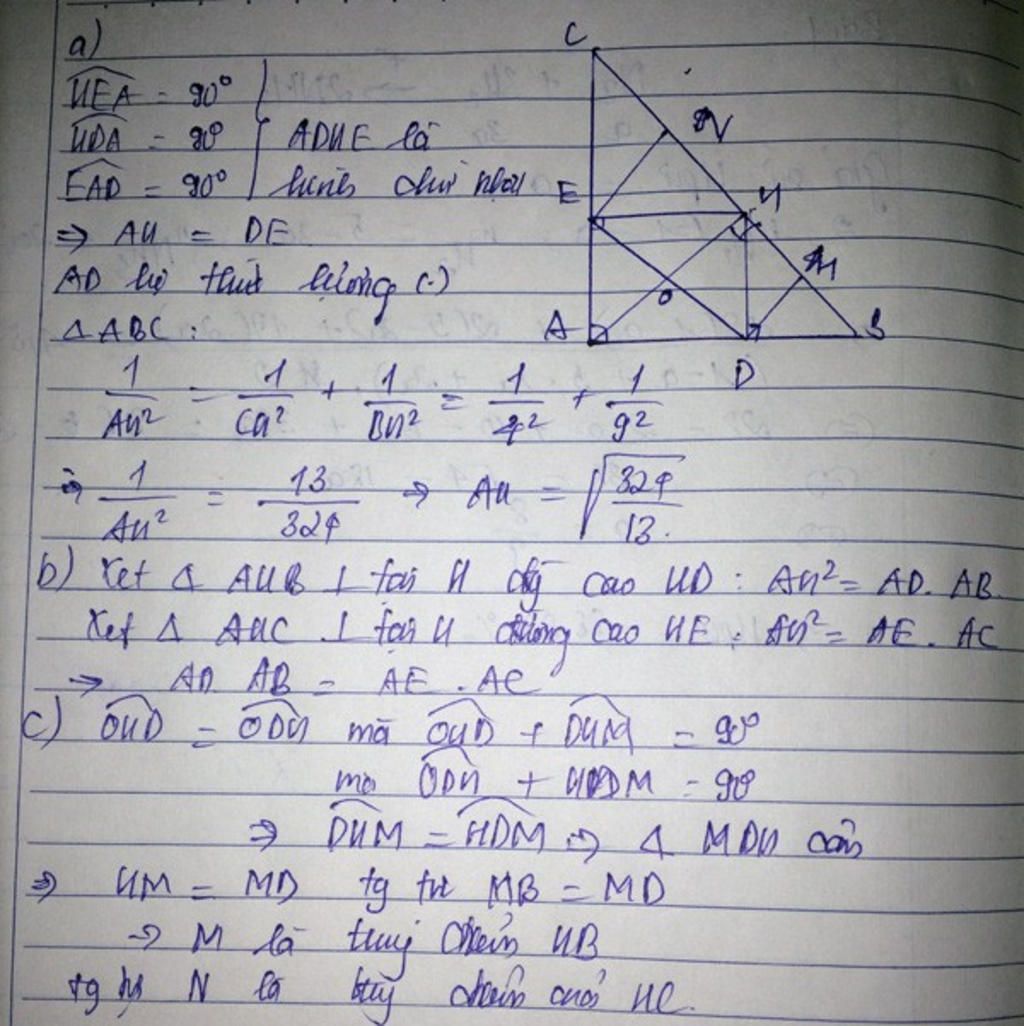 a)
HEA = 90°
HDA = 90°
EAD = 90°
ADHE là hình chữ nhật
⇒ AH = DE
AD hệ thức lượng (-)
Δ ABC:
1/AH² = 1/CH² + 1/BH² = 1/4² + 1/9²
⇒ 1/AH² = 13/324 ⇒ AH = √(324/13).
b) Xet Δ AHB ⊥ tại H đg cao HD : AH² = AD. AB
Xet Δ AHC ⊥ tại H đường cao HE : AH² = AE. AC
→ AD. AB = AE. AC
c) OHD = ODH mà OHD + DHM = 90°
mà ODH + HDM = 90°
⇒ DHM = HDM ⇒ Δ MDH cân
⇒ HM = MD tg tự MB = MD
→ M là trung điểm HB
tg tự N là trung điểm của HC.
C
N
E
H
M
O
A
D
B